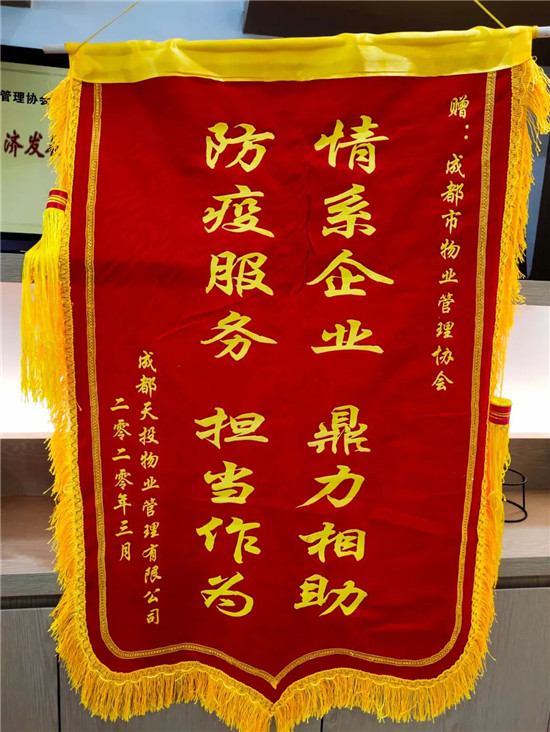 赠：成都市物业管理协会
情系企业 鼎力相助
防疫服务 担当作为
成都天投物业管理有限公司
二零二零年三月
管理协会
济发